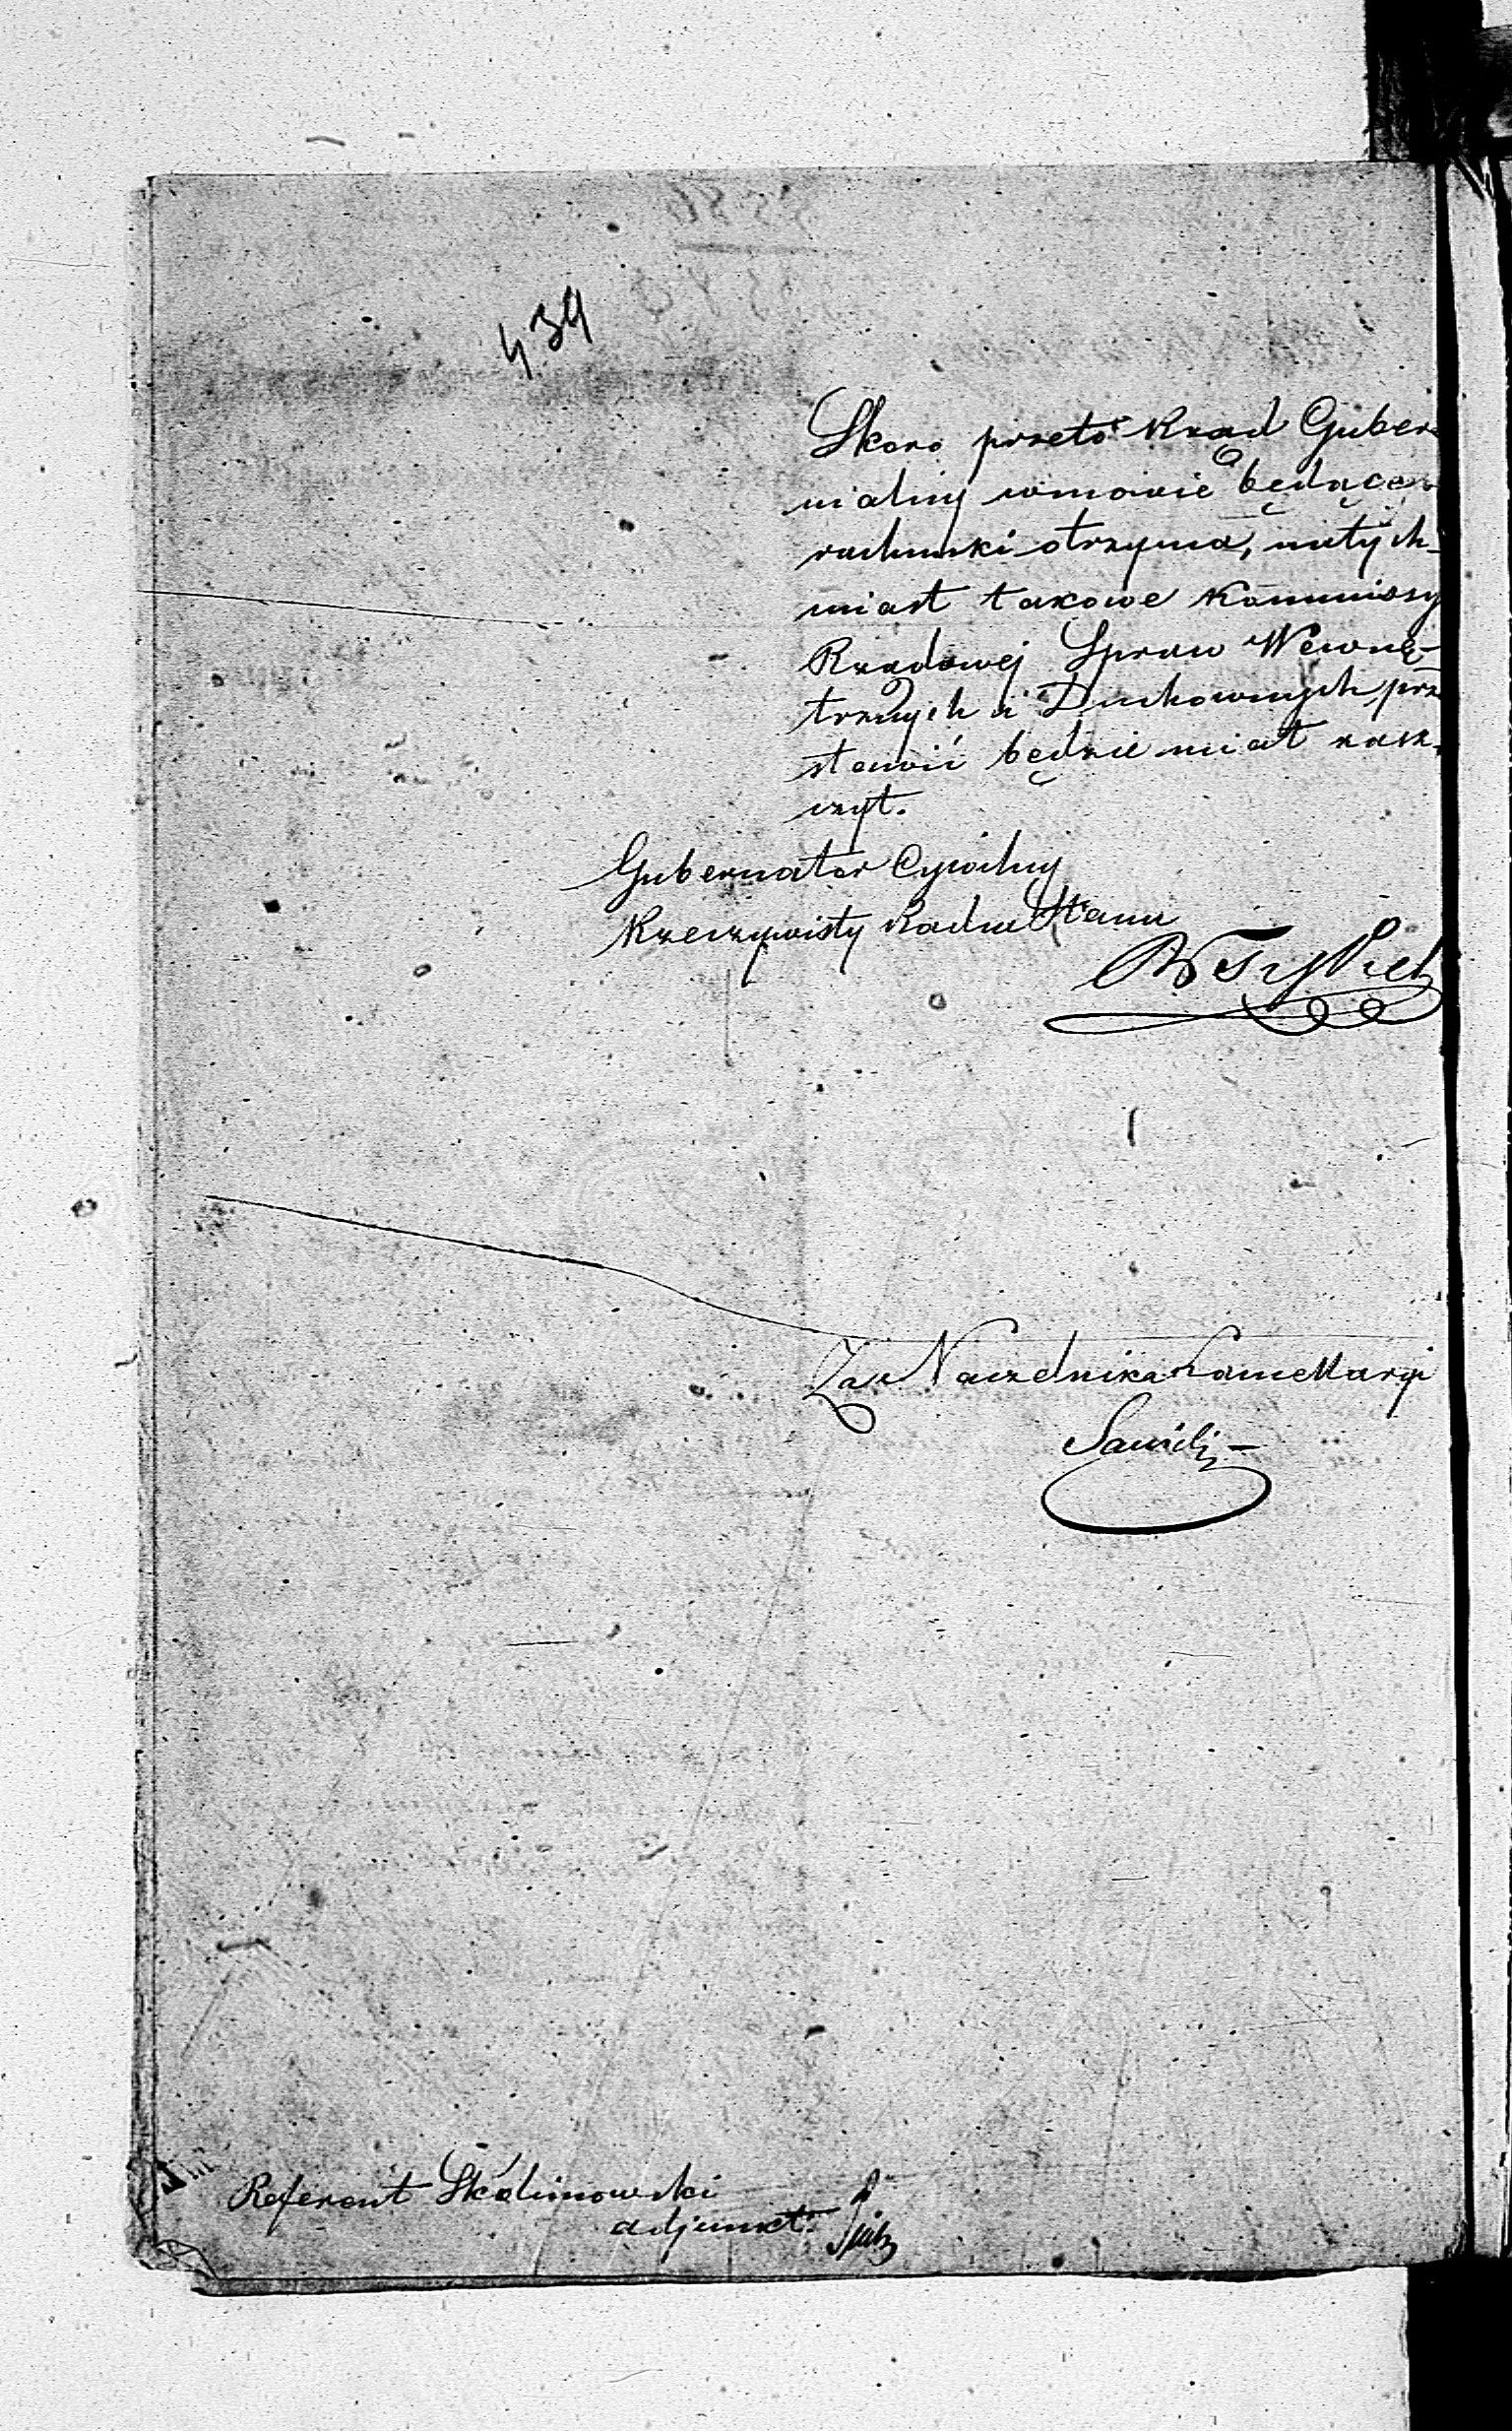 439
Skoro przeto Rząd Guber
nialny wmowie będące
rachunki otrzyma, natych-
miast takowe Kommissy
Rządowej Spraw Wewnę-
trznych i Duchownych prze
stawić będzie miał zasz-
czyt.
Gubernator Cywilny
Rzeczywisty Radca Stanu
Za Naczelnika Kancellaryi
Referent Skalimowski
adjunkt.